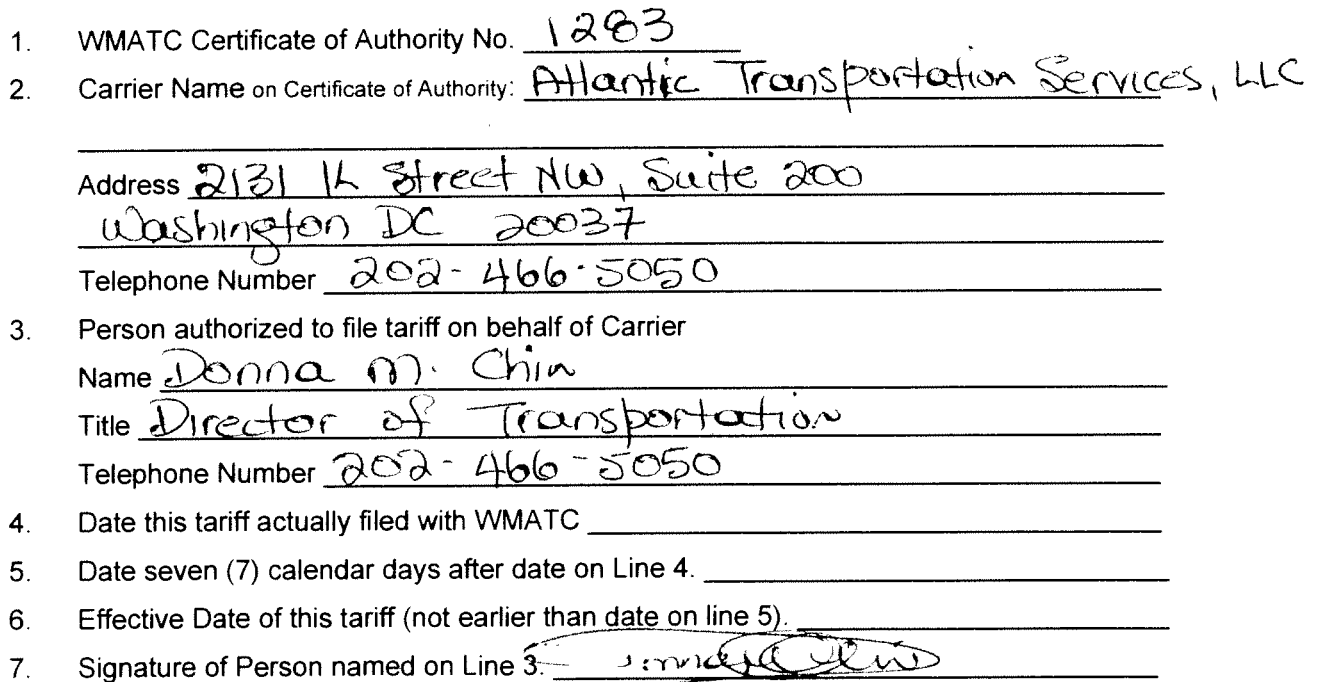 1. WMATC Certificate of Authority No. 1283
2. Carrier Name on Certificate of Authority: Atlantic Transportation Services, LLC
Address 2131 K Street NW, Suite 200
Washington DC 20037
Telephone Number 202-466-5050
3. Person authorized to file tariff on behalf of Carrier
Name Donna M. Chin
Title Director of Transportation
Telephone Number 202-466-5050
4. Date this tariff actually filed with WMATC
5. Date seven (7) calendar days after date on Line 4.
6. Effective Date of this tariff (not earlier than date on line 5).
7. Signature of Person named on Line 3.